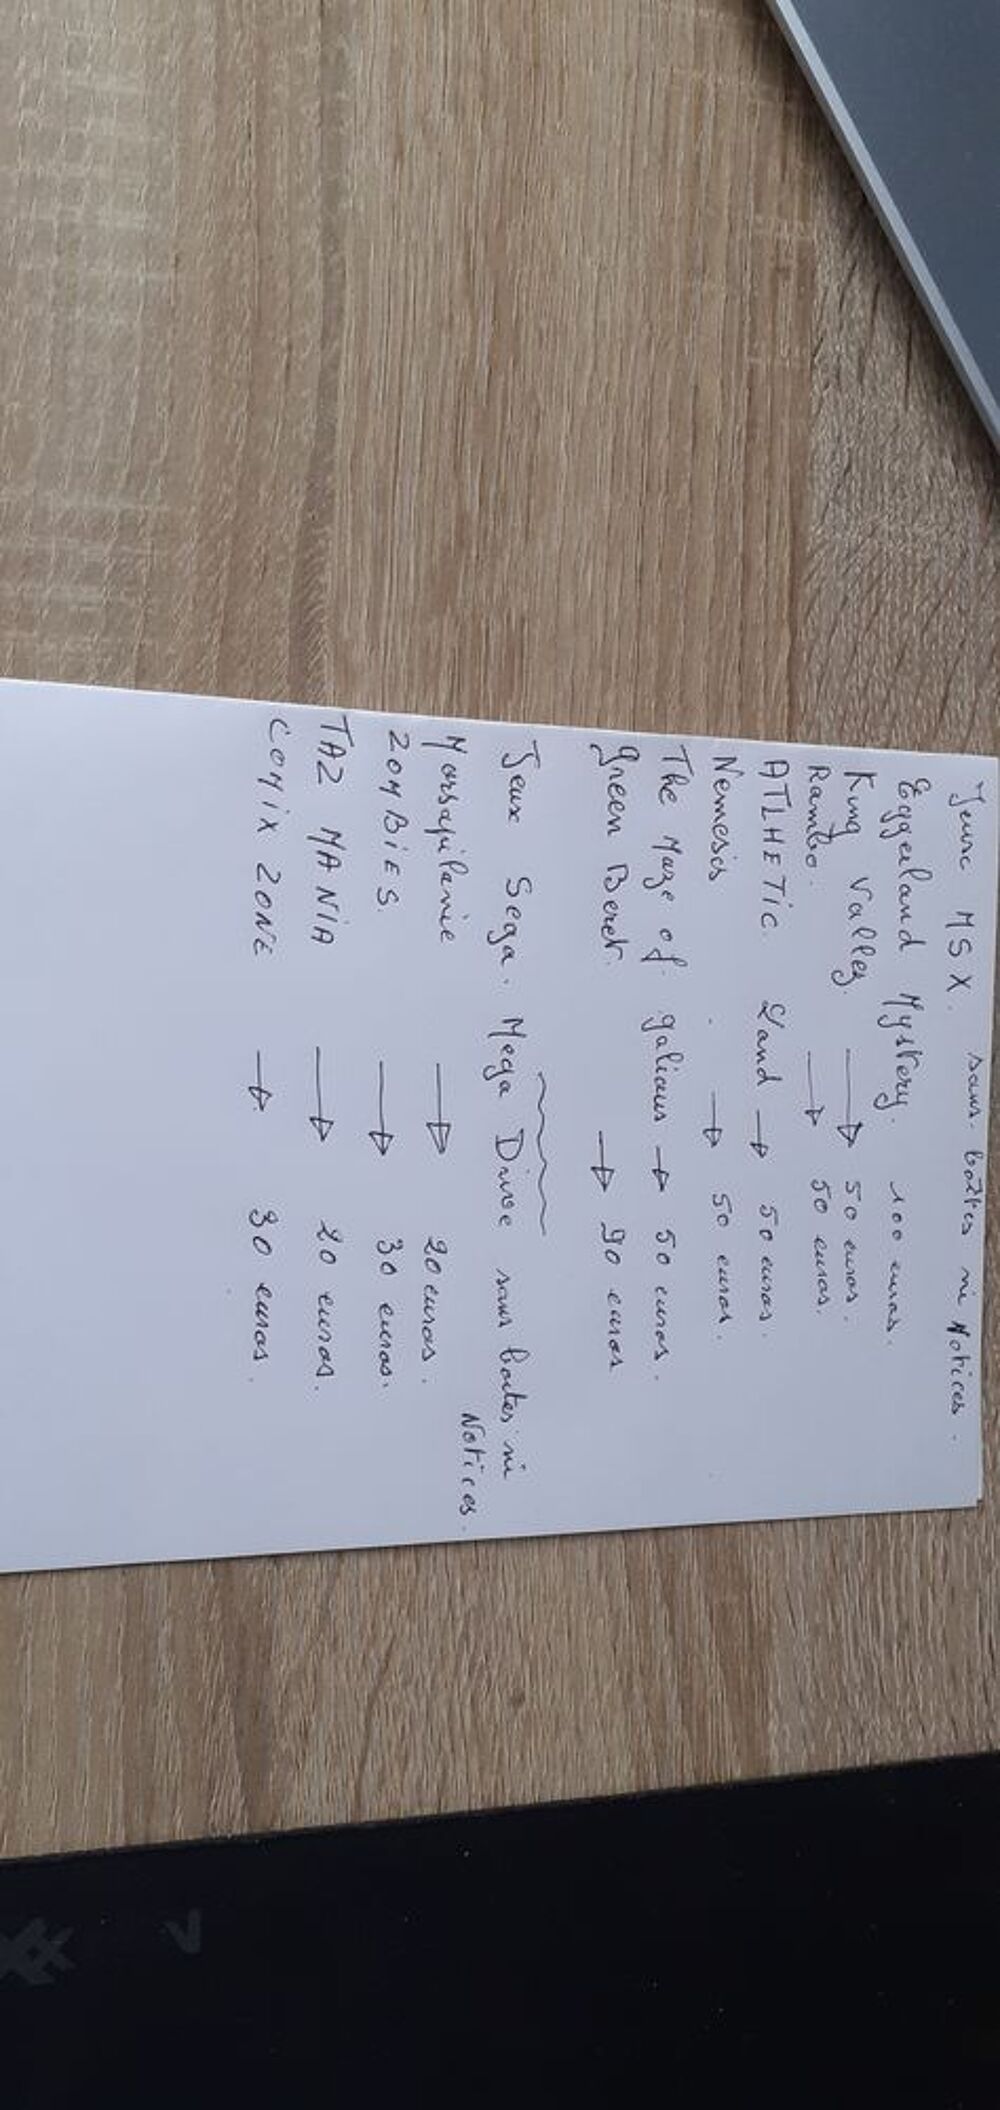 Jeux MSX. sans boîtes ni Notices.
Eggerland Mystery. 100 euros.
King Valley. → 50 euros.
Rambo. → 50 euros.
ATLHETIC Land → 50 euros.
Nemesis → 50 euros.
The Maze of galious → 50 euros.
green Beret. → 90 euros
Jeux Sega. Mega Drive sans boites ni
Notices.
Marsupilamie → 20 euros.
ZOMBIES. → 30 euros.
TAZ MANIA → 20 euros.
COMIX ZONE → 30 euros.